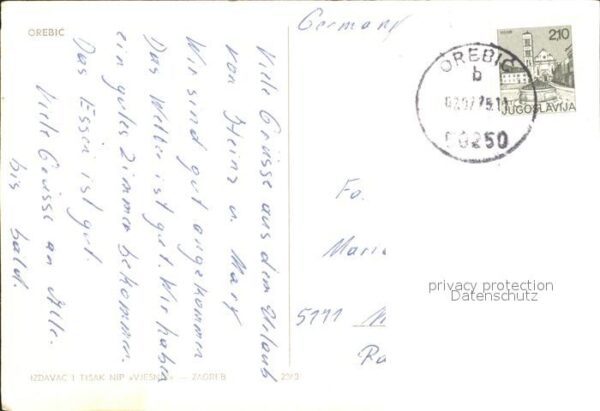 OREBIC
Viele Grüsse aus dem Urlaub
von Heinz u. Mary
Wir sind gut angekommen
Das Wetter ist gut. Wir haben
ein gutes Zimmer bekommen.
Das Essen ist gut.
Viele Grüsse an Alle.
bis bald.
Germany
2,10
JUGOSLAVIJA
OREBIĆ
b
50250
Fa.
Maria
5111
privacy protection
Datenschutz
IZDAVAČ I TISAK NIP «VJESNIK» — ZAGREB